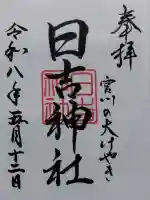 奉拝
宮川の大けやき
日吉神社
令和八年五月十二日